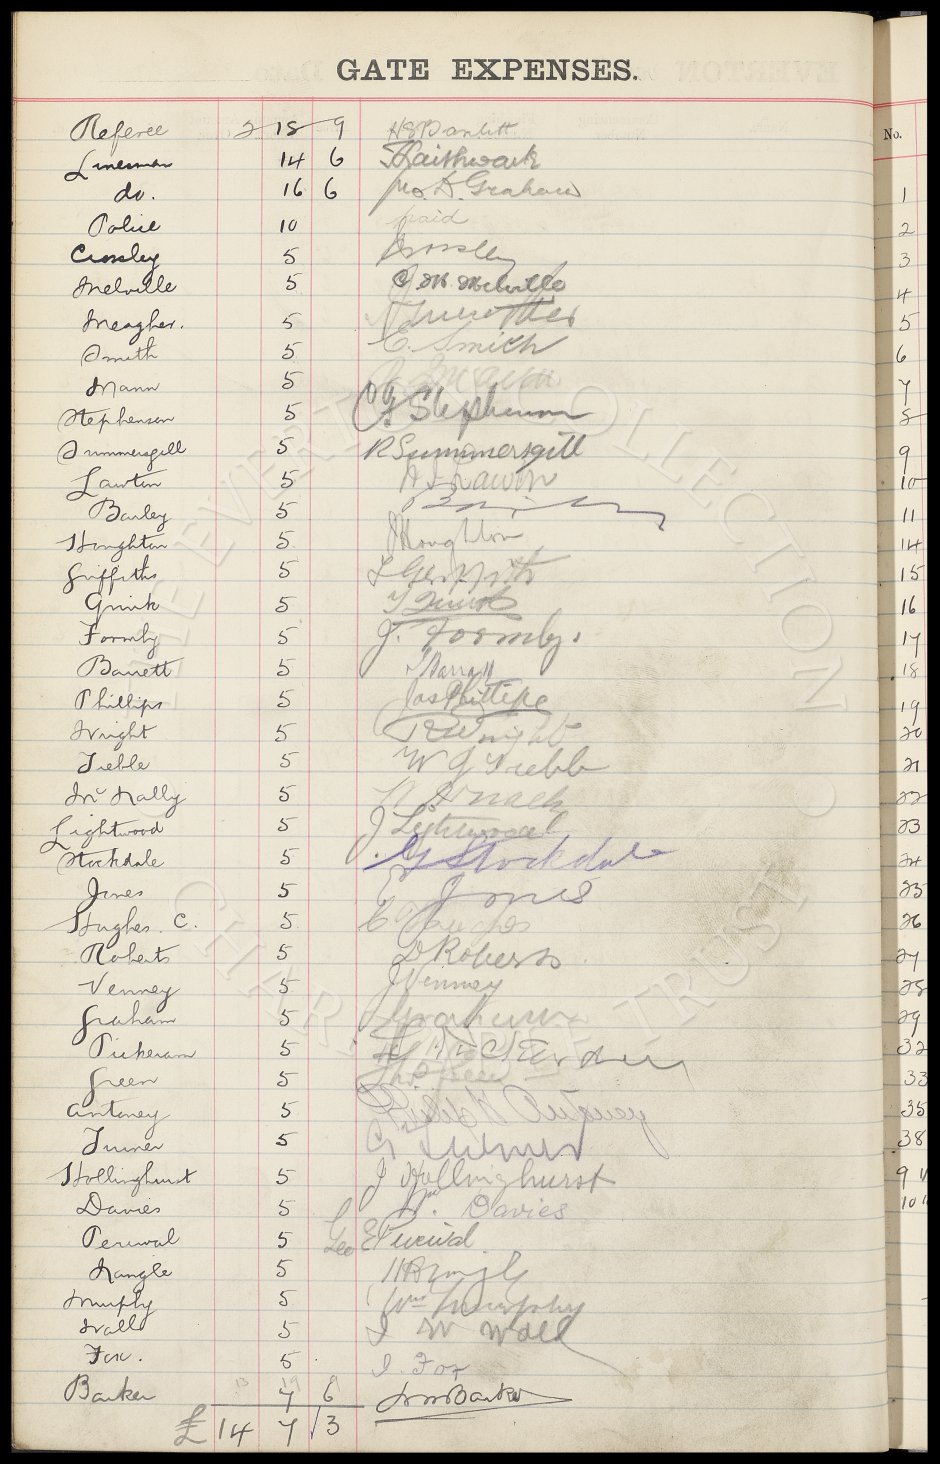 GATE EXPENSES.
No.
Referee 2 18 9
Linesman 14 6
do. 16 6 Geo. D. Graham 1
Police 10 paid 2
Crossley 5 Crossley 3
Melville 5 Melville 4
Meagher. 5 5
Smith 5 C. Smith 6
Mann 5 Mann 7
Stephenson 5 Stephenson 8
Summersgill 5 R Summersgill 9
Lawton 5 Lawton 10
Barley 5 11
Houghton 5 J Houghton 14
Griffiths 5 15
Quirk 5 T Quirk 16
Formby 5 J. Formby. 17
Barrett 5 18
Phillips 5 Jas Phillips 19
Wright 5 R Wright 20
Treble 5 W G Trebble 21
McNally 5 22
Lightwood 5 J Lightwood 23
Stockdale 5 Stockdale 24
Jones 5 Jones 25
Hughes. C. 5 C Hughes 26
Roberts 5 D Roberts 27
Venney 5 J Venney 28
Graham 5 Graham 29
Pickeram 5 32
Green 5 33
Antoney 5 Antoney 35
Turner 5 Turner 38
Hollinghurst 5 J Hollinghurst 9
Davies 5 Wm. Davies 10
Percival 5 Geo E Percival
Nangle 5
Murphy 5 Wm Murphy
Wall 5 J W Wall
Fox. 5 J. Fox
Barker 7 6 Barker
£ 14 7 3
THE EVERTON COLLECTION
CHARITABLE TRUST